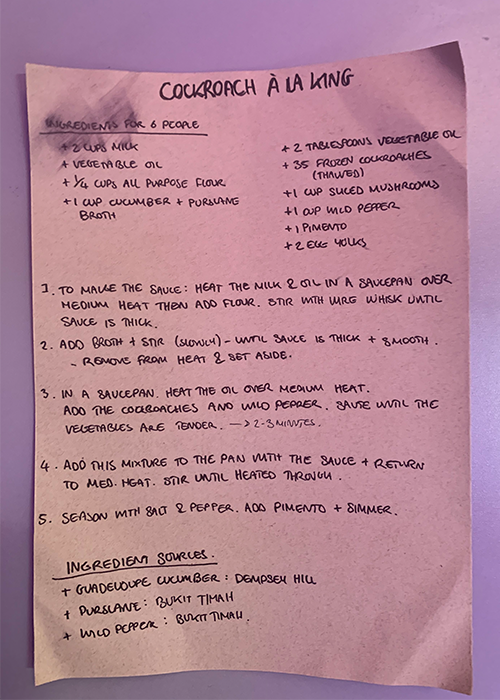 COCKROACH À LA KING
INGREDIENTS FOR 6 PEOPLE
+ 2 CUPS MILK
+ VEGETABLE OIL
+ 1/4 CUPS ALL PURPOSE FLOUR
+ 1 CUP CUCUMBER + PURSLANE
BROTH
+ 2 TABLESPOONS VEGETABLE OIL
+ 35 FROZEN COCKROACHES
(THAWED)
+ 1 CUP SLICED MUSHROOMS
+ 1 CUP WILD PEPPER
+ 1 PIMENTO
+ 2 EGG YOLKS
1. TO MAKE THE SAUCE: HEAT THE MILK & OIL IN A SAUCEPAN OVER
MEDIUM HEAT THEN ADD FLOUR. STIR WITH WIRE WHISK UNTIL
SAUCE IS THICK.
2. ADD BROTH + STIR (SLOWLY) - UNTIL SAUCE IS THICK + SMOOTH.
- REMOVE FROM HEAT & SET ASIDE.
3. IN A SAUCEPAN. HEAT THE OIL OVER MEDIUM HEAT.
ADD THE COCKROACHES AND WILD PEPPER. SAUTE UNTIL THE
VEGETABLES ARE TENDER. —> 2-3 MINUTES.
4. ADD THIS MIXTURE TO THE PAN WITH THE SAUCE + RETURN
TO MED. HEAT. STIR UNTIL HEATED THROUGH.
5. SEASON WITH SALT & PEPPER. ADD PIMENTO + SIMMER.
INGREDIENT SOURCES.
+ GUADELOUPE CUCUMBER: DEMPSEY HILL
+ PURSLANE: BUKIT TIMAH
+ WILD PEPPER: BUKIT TIMAH.